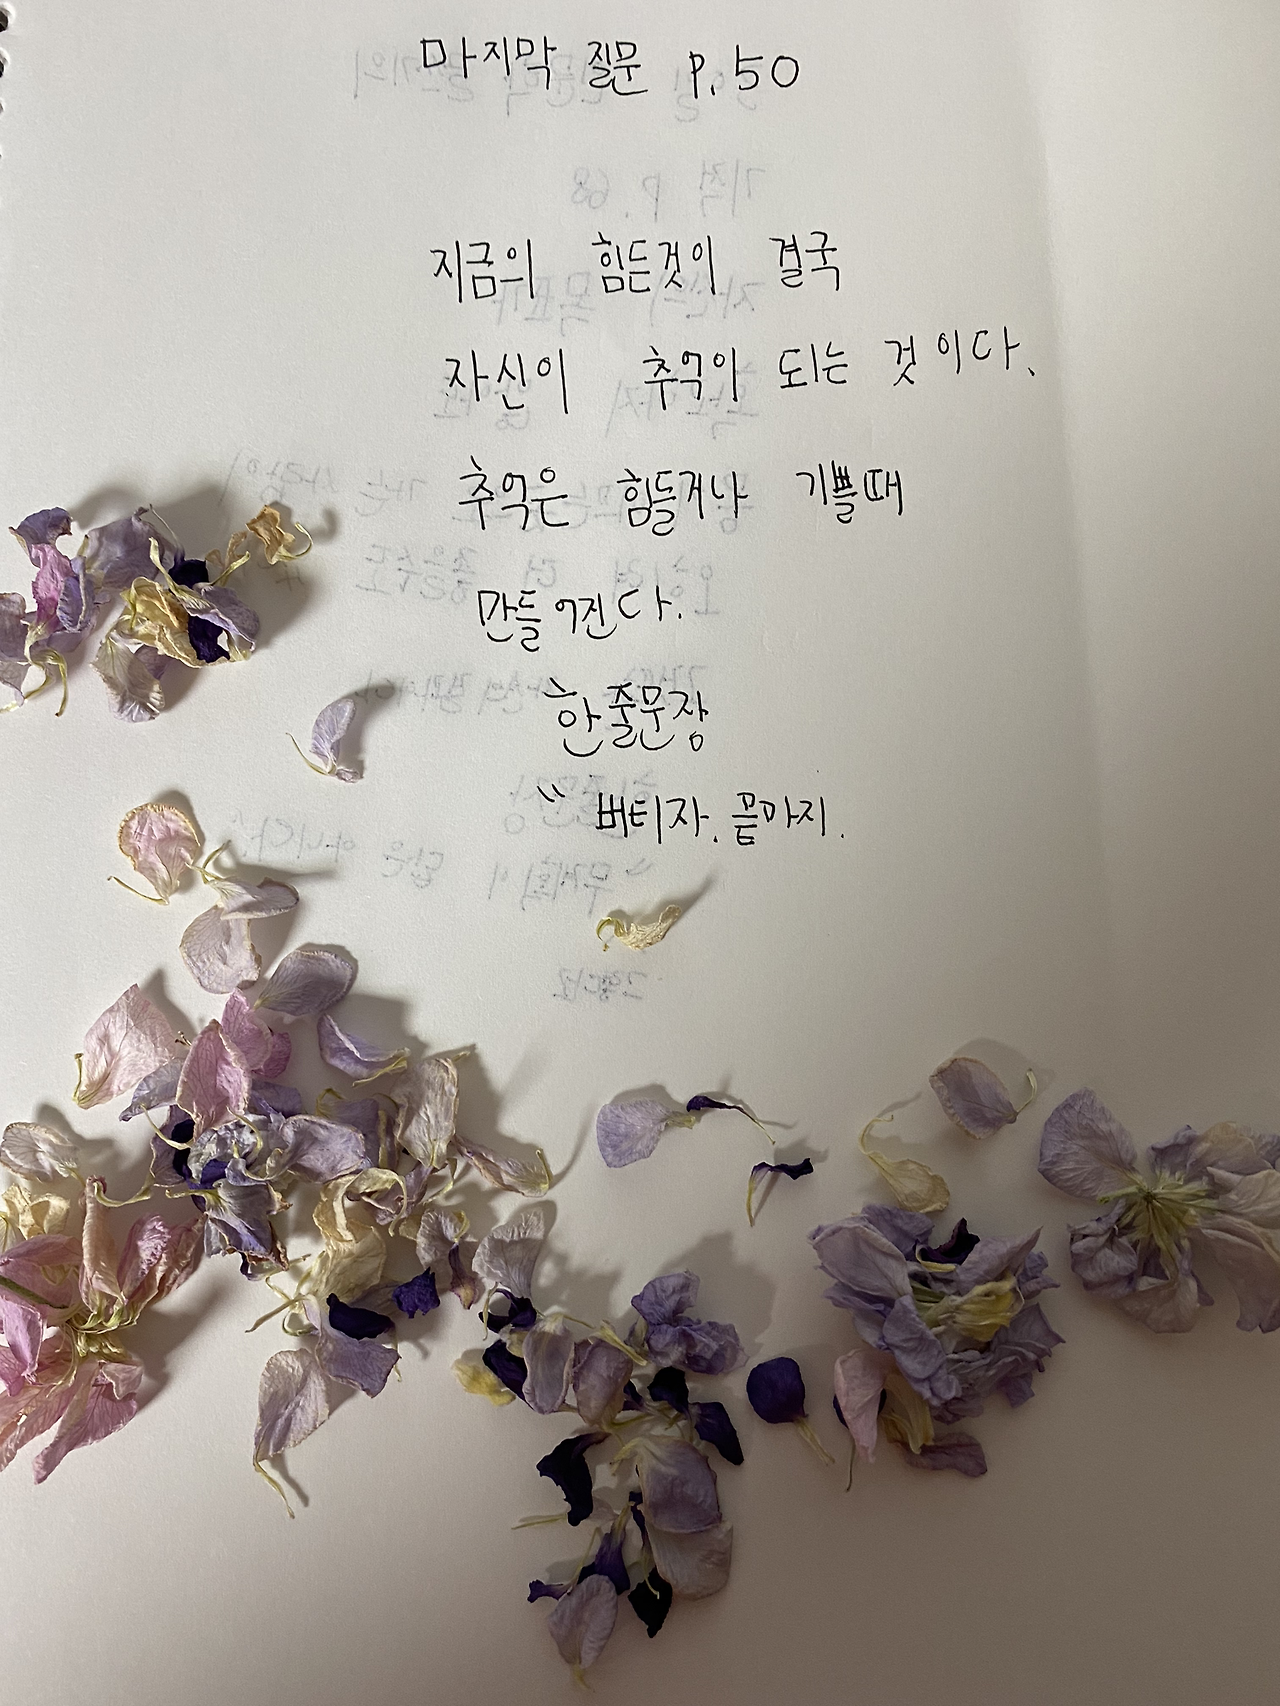 마지막 질문 p.50
지금의 힘든것이 결국
자신이 추억이 되는 것이다.
추억은 힘들거나 기쁠때
만들어진다.
한줄문장
" 버티자. 끝마지.